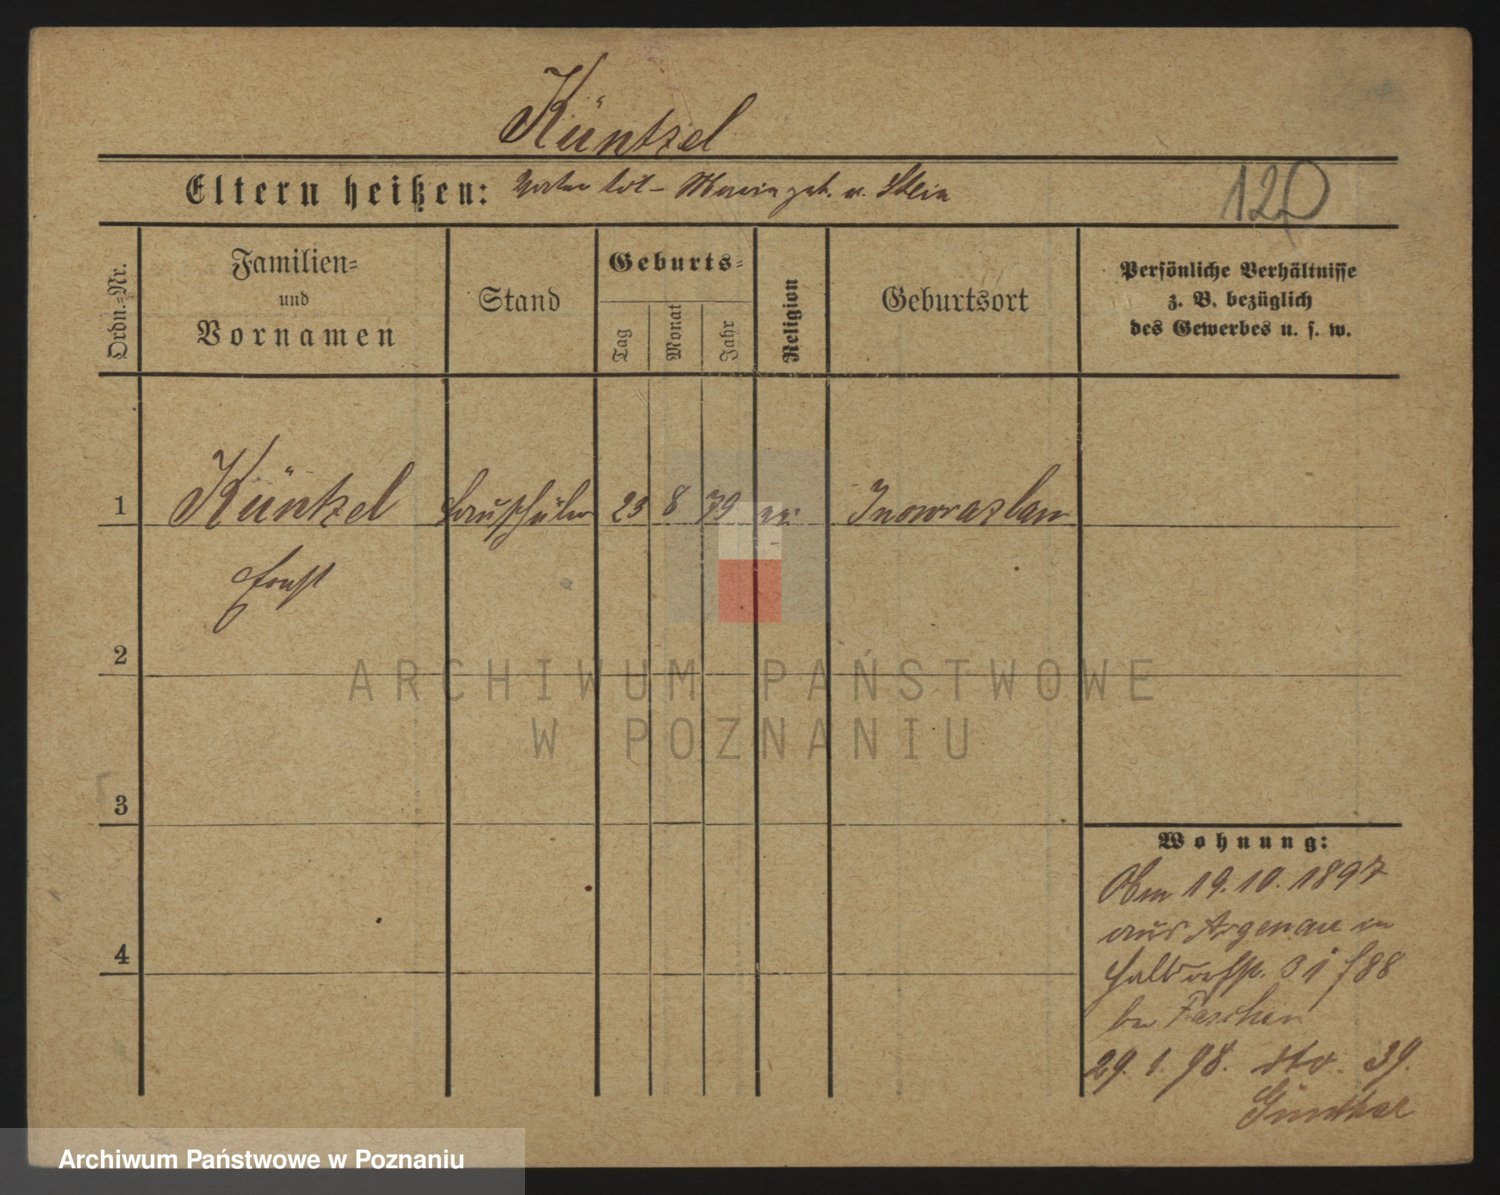 Küntzel
Eltern heißen: Vater tot – Maria geb. v. Stein
120
Ordn.-Nr.
Familien-
und
Vornamen
Stand
Geburts-
Tag
Monat
Jahr
Religion
Geburtsort
Persönliche Verhältnisse
z. B. bezüglich
des Gewerbes u. s. w.
1
Küntzel
Bauschüler
23
8
79
ev.
Inowrazlaw
Ernst
2
3
4
Wohnung:
Am 19.10.1897
aus Argenau in
Halbdorfstr. 31
bei
29.1.98. dto. 39.
Günther
ARCHIWUM PAŃSTWOWE
W POZNANIU
Archiwum Państwowe w Poznaniu